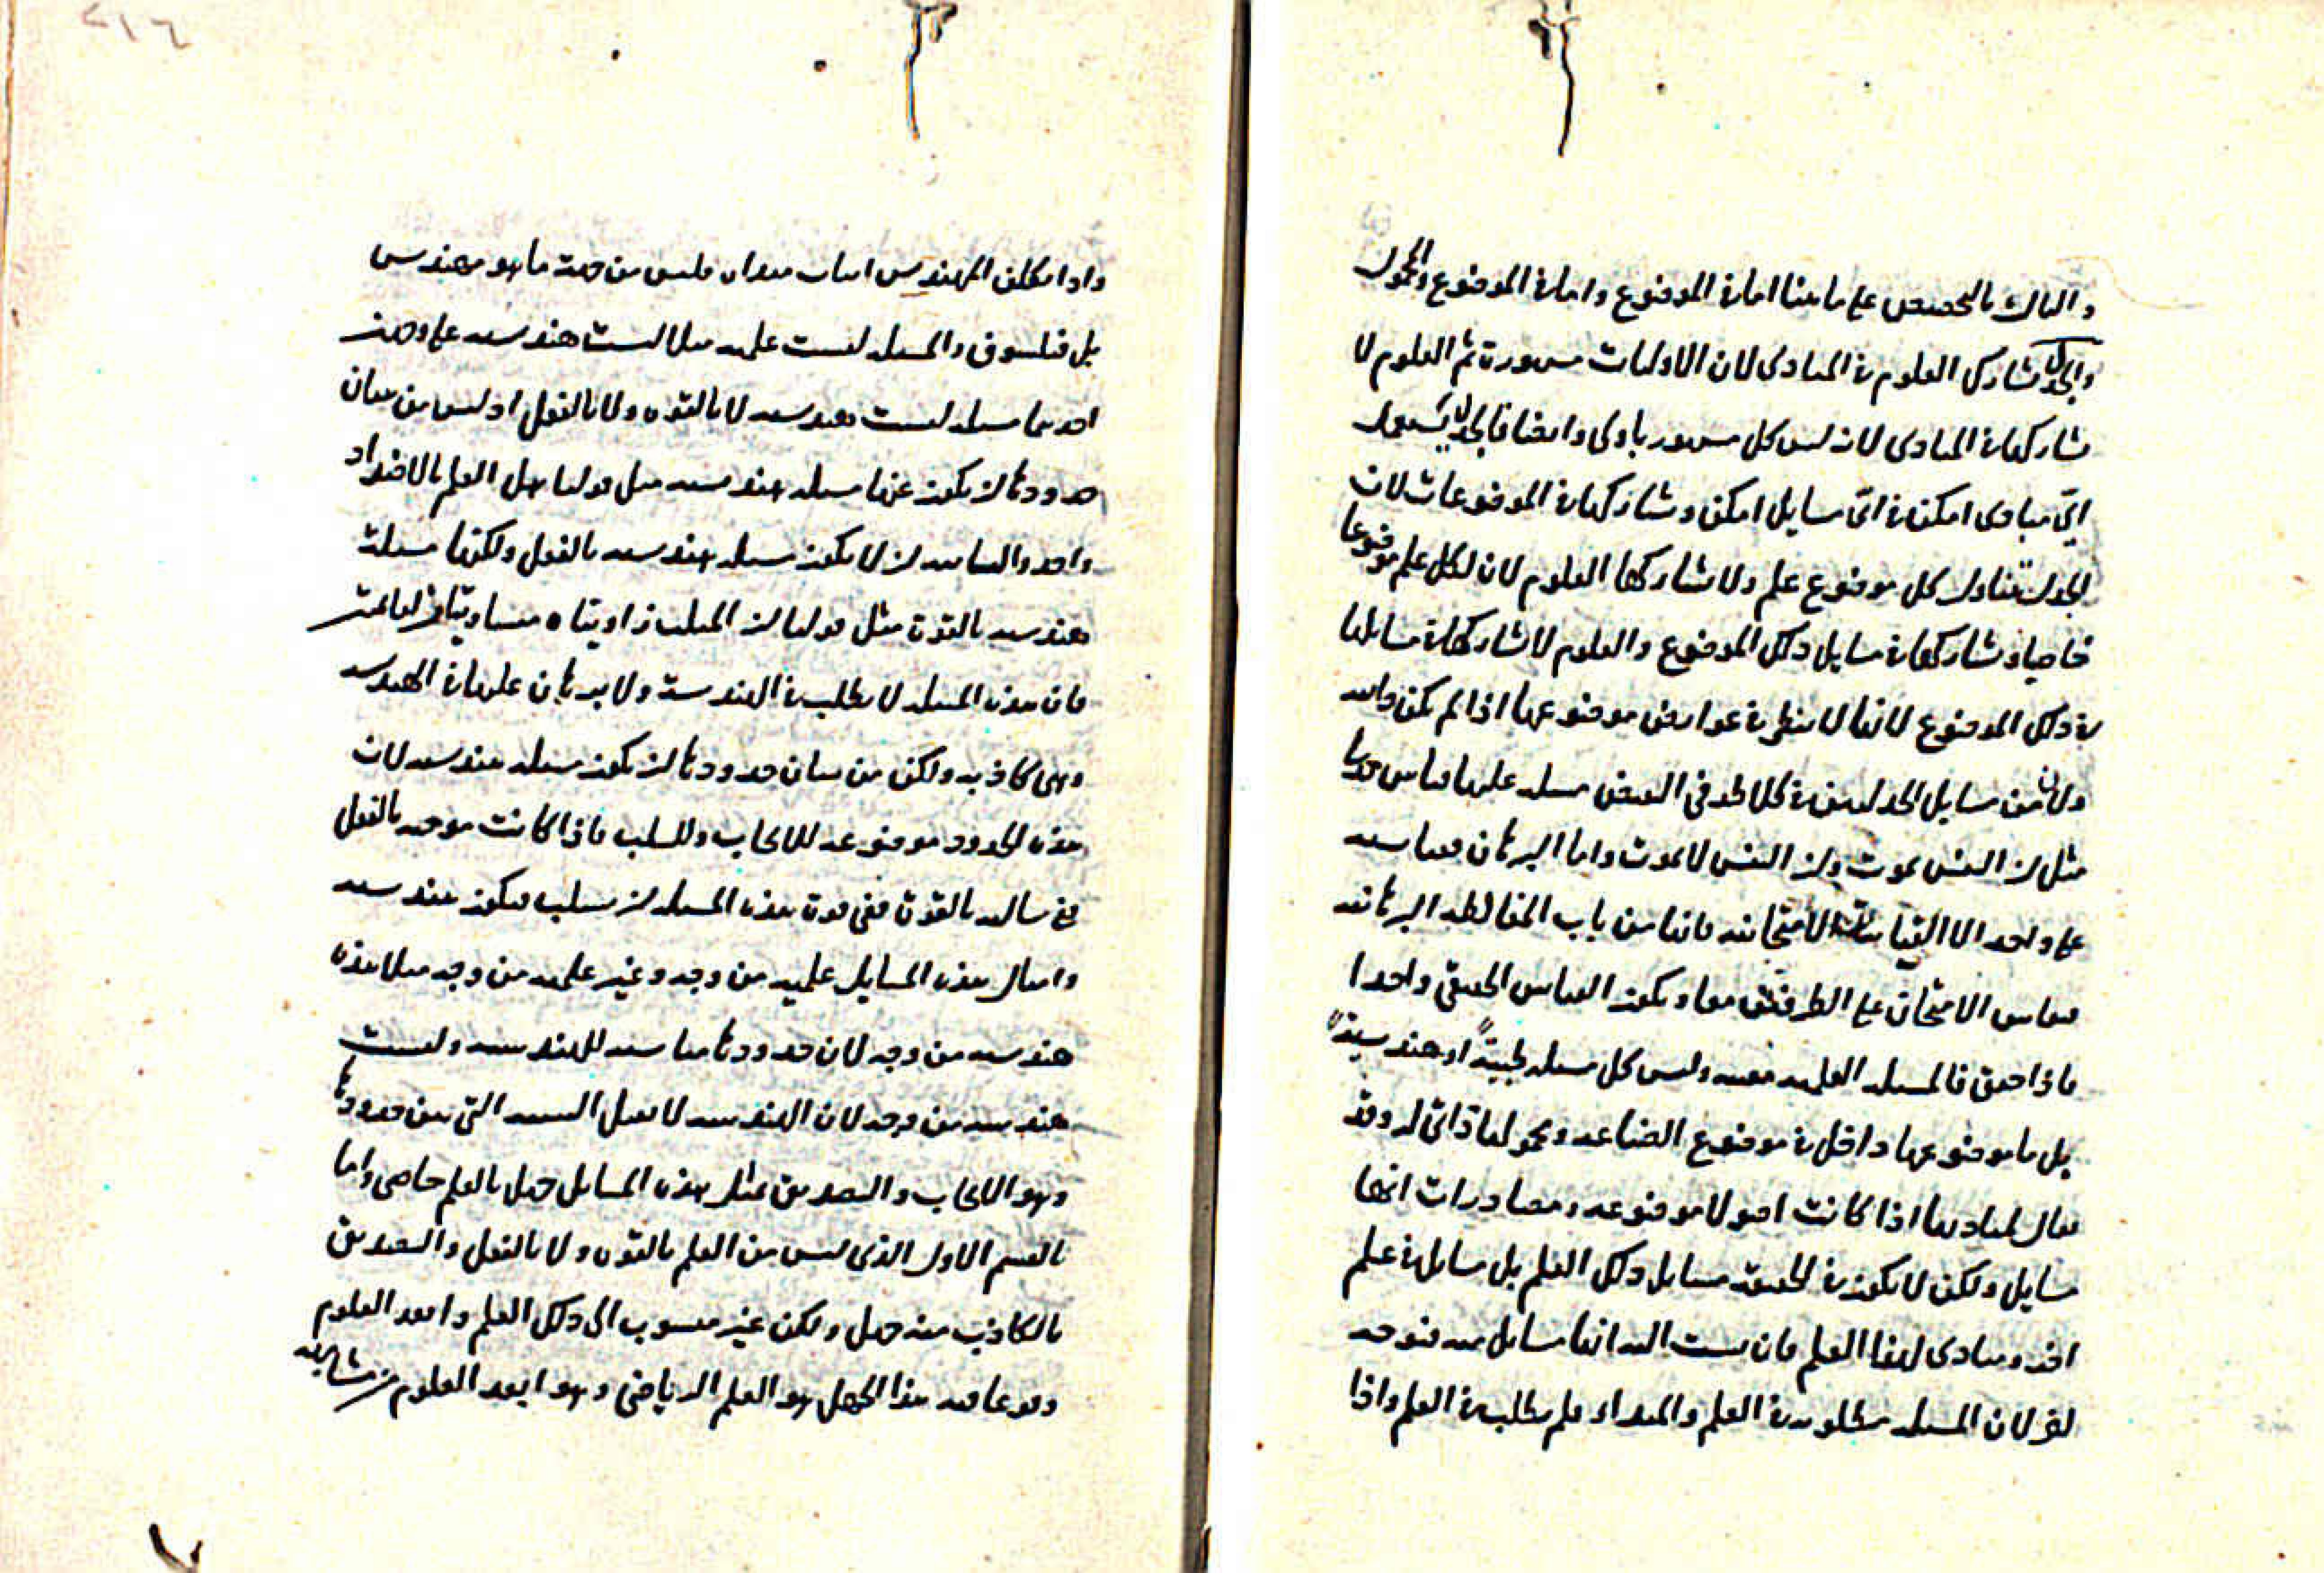 والثالث بالتخصيص على ما بينا اما في الموضوع واما في الموضوع والمحمول
والجدل تشارك العلوم في المبادى لان الاوليات مشهورة ثم العلوم لا
تشاركها في المبادى لانه ليس كل مشهور باولى وايضا فالجدل يستعمل
اىّ مبادى امكن في اىّ مسايل امكن وتشاركها في الموضوعات لان
الجدل تتناول كل موضوع علم ولا تشاركها العلوم لان لكل علم موضوعا
خاصيا وتشاركها في مسايل ذلك الموضوع والعلوم لا تشاركها في مسايلها
في ذلك الموضوع لانها لا ينظر في عوارض موضوعها اذا لم يكن ذاتيه
ولان من مسايل الجدليين في كلا طرفى النقيض مسله عليها قياس جدليا
مثل ان النفس يموت وان النفس لا يموت واما البرهان فقياسه
على واحد الا القياسات الامتحانيه فانها من باب المغالطه البرهانيه
فقياس الامتحان على الطرفين معا ويكون القياس الحقيقى واحدا
فاذا حقق فالمسله العلميه معينه وليس كل مسله طبيةً او هندسيةً
بل ما موضوعها داخل في موضوع الصناعه ومحمولها ذاتى له وقد
يقال لمباديها اذا كانت اصولا موضوعه ومصادرات انها
مسايل ولكن لا يكون في الحقيقه مسايل ذلك العلم بل مسايل في علم
اخر ومبادى لهذا العلم فان نسبت اليه انها مسايل فيه فبوجه
اخر لان المسله مطلوبه في العلم والمبداء لم يطلب في العلم واذا
٢١٦
واذا تكلف المهندس اثبات مبداه فليس من جهة ما هو مهندس
بل فيلسوف والمسله ليست علميه مثلا ليست هندسيه على وجهين
احدهما مسله ليست هندسيه لا بالقوه ولا بالفعل اذ ليس من شان
حدودها ان يكون عنها مسله هندسيه مثل قولنا هل العلم بالاضداد
واحد والثانيه ان لا يكون مسله هندسيه بالفعل ولكنها مسلة
هندسيه بالقوة مثل قولنا ان المثلث زاويتاه مساويتان لقائمتين
فان هذه المسله لا يطلب في الهندسة ولا برهان عليها في الهندسه
وهى كاذبه ولكن من شان حدودها ان يكون مسله هندسيه لان
هذه الحدود موضوعه للايجاب وللسلب فاذا كانت موجبه بالفعل
فهى سالبه بالقوة ففى قوة هذه المسله ان يسلب فيكون هندسيه
وامثال هذه المسايل علميه من وجه وغير علميه من وجه مثلا هذه
هندسيه من وجه لان حدودها مناسبه للهندسه وليست
هندسيه من وجه لان الهندسه لا تقبل النسبه التى بين حدودها
وهو الايجاب والتصديق بمثل هذه المسايل جهل بالعلم خاصى واما
بالقسم الاول الذى ليس من العلم بالقوه ولا بالفعل والتصديق
بالكاذب منه جهل ولكن غير منسوب الى ذلك العلم وابعد العلوم
وقوعا فيه هذا الجهل هو العلم الرياضى وهو ابعد العلوم من مشابهه